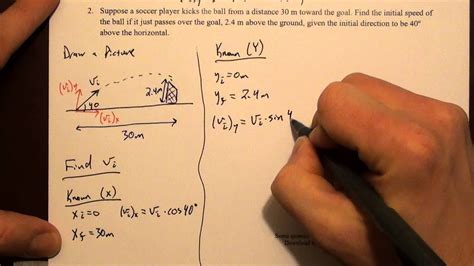 2. Suppose a soccer player kicks the ball from a distance 30 m toward the goal. Find the initial speed of
the ball if it just passes over the goal, 2.4 m above the ground, given the initial direction to be 40°
above the horizontal.
Draw a Picture
(vᵢ)y vᵢ
40
(vᵢ)x
2.4m
30m
Find vᵢ
Known (x)
xᵢ=0 (vᵢ)x = vᵢ·cos40°
xf = 30m
Known (Y)
yᵢ = 0m
yf = 2.4m
(vᵢ)y = vᵢ·sin 4